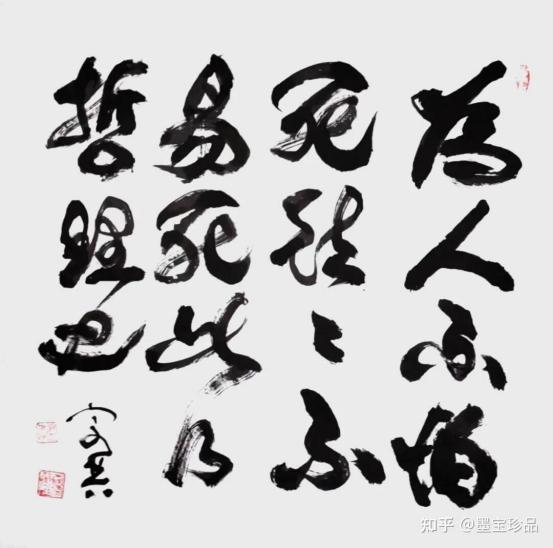 為人不怕
死往々不
易死此乃
哲理也
知乎 @墨宝珍品